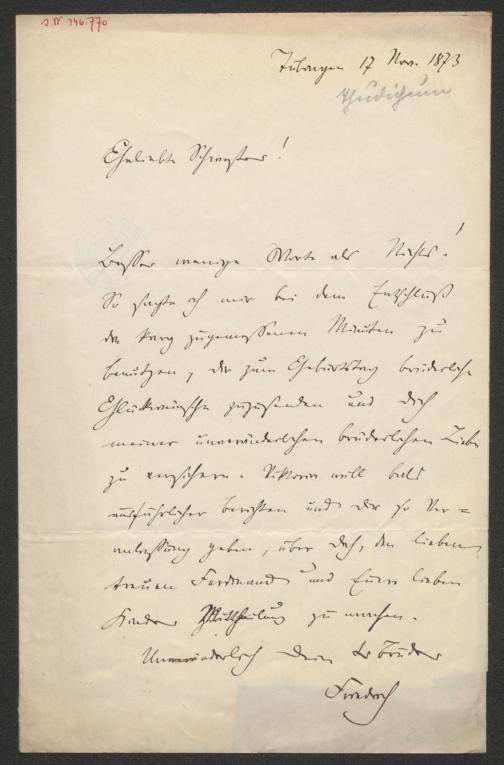 J.N. 146.770
Tübingen 17 Nov. 1873
Thudichum
Geliebte Schwester!
Besser wenige Worte als Nichts!
So sagte ich mir bei dem Entschluß
die karg zugemessenen Minuten zu
benutzen, Dir zum Geburtstag brüderliche
Glückwünsche zuzusenden und Dich
meiner unveränderlichen brüderlichen Liebe
zu versichern. Viktorine will bald
ausführlicher berichten und Dir so Ver=
anlassung geben, über Dich, den lieben
treuen Ferdinand und Eure lieben
Kinder Mittheilung zu machen.
Unveränderlich Dein Bruder
Friedrich